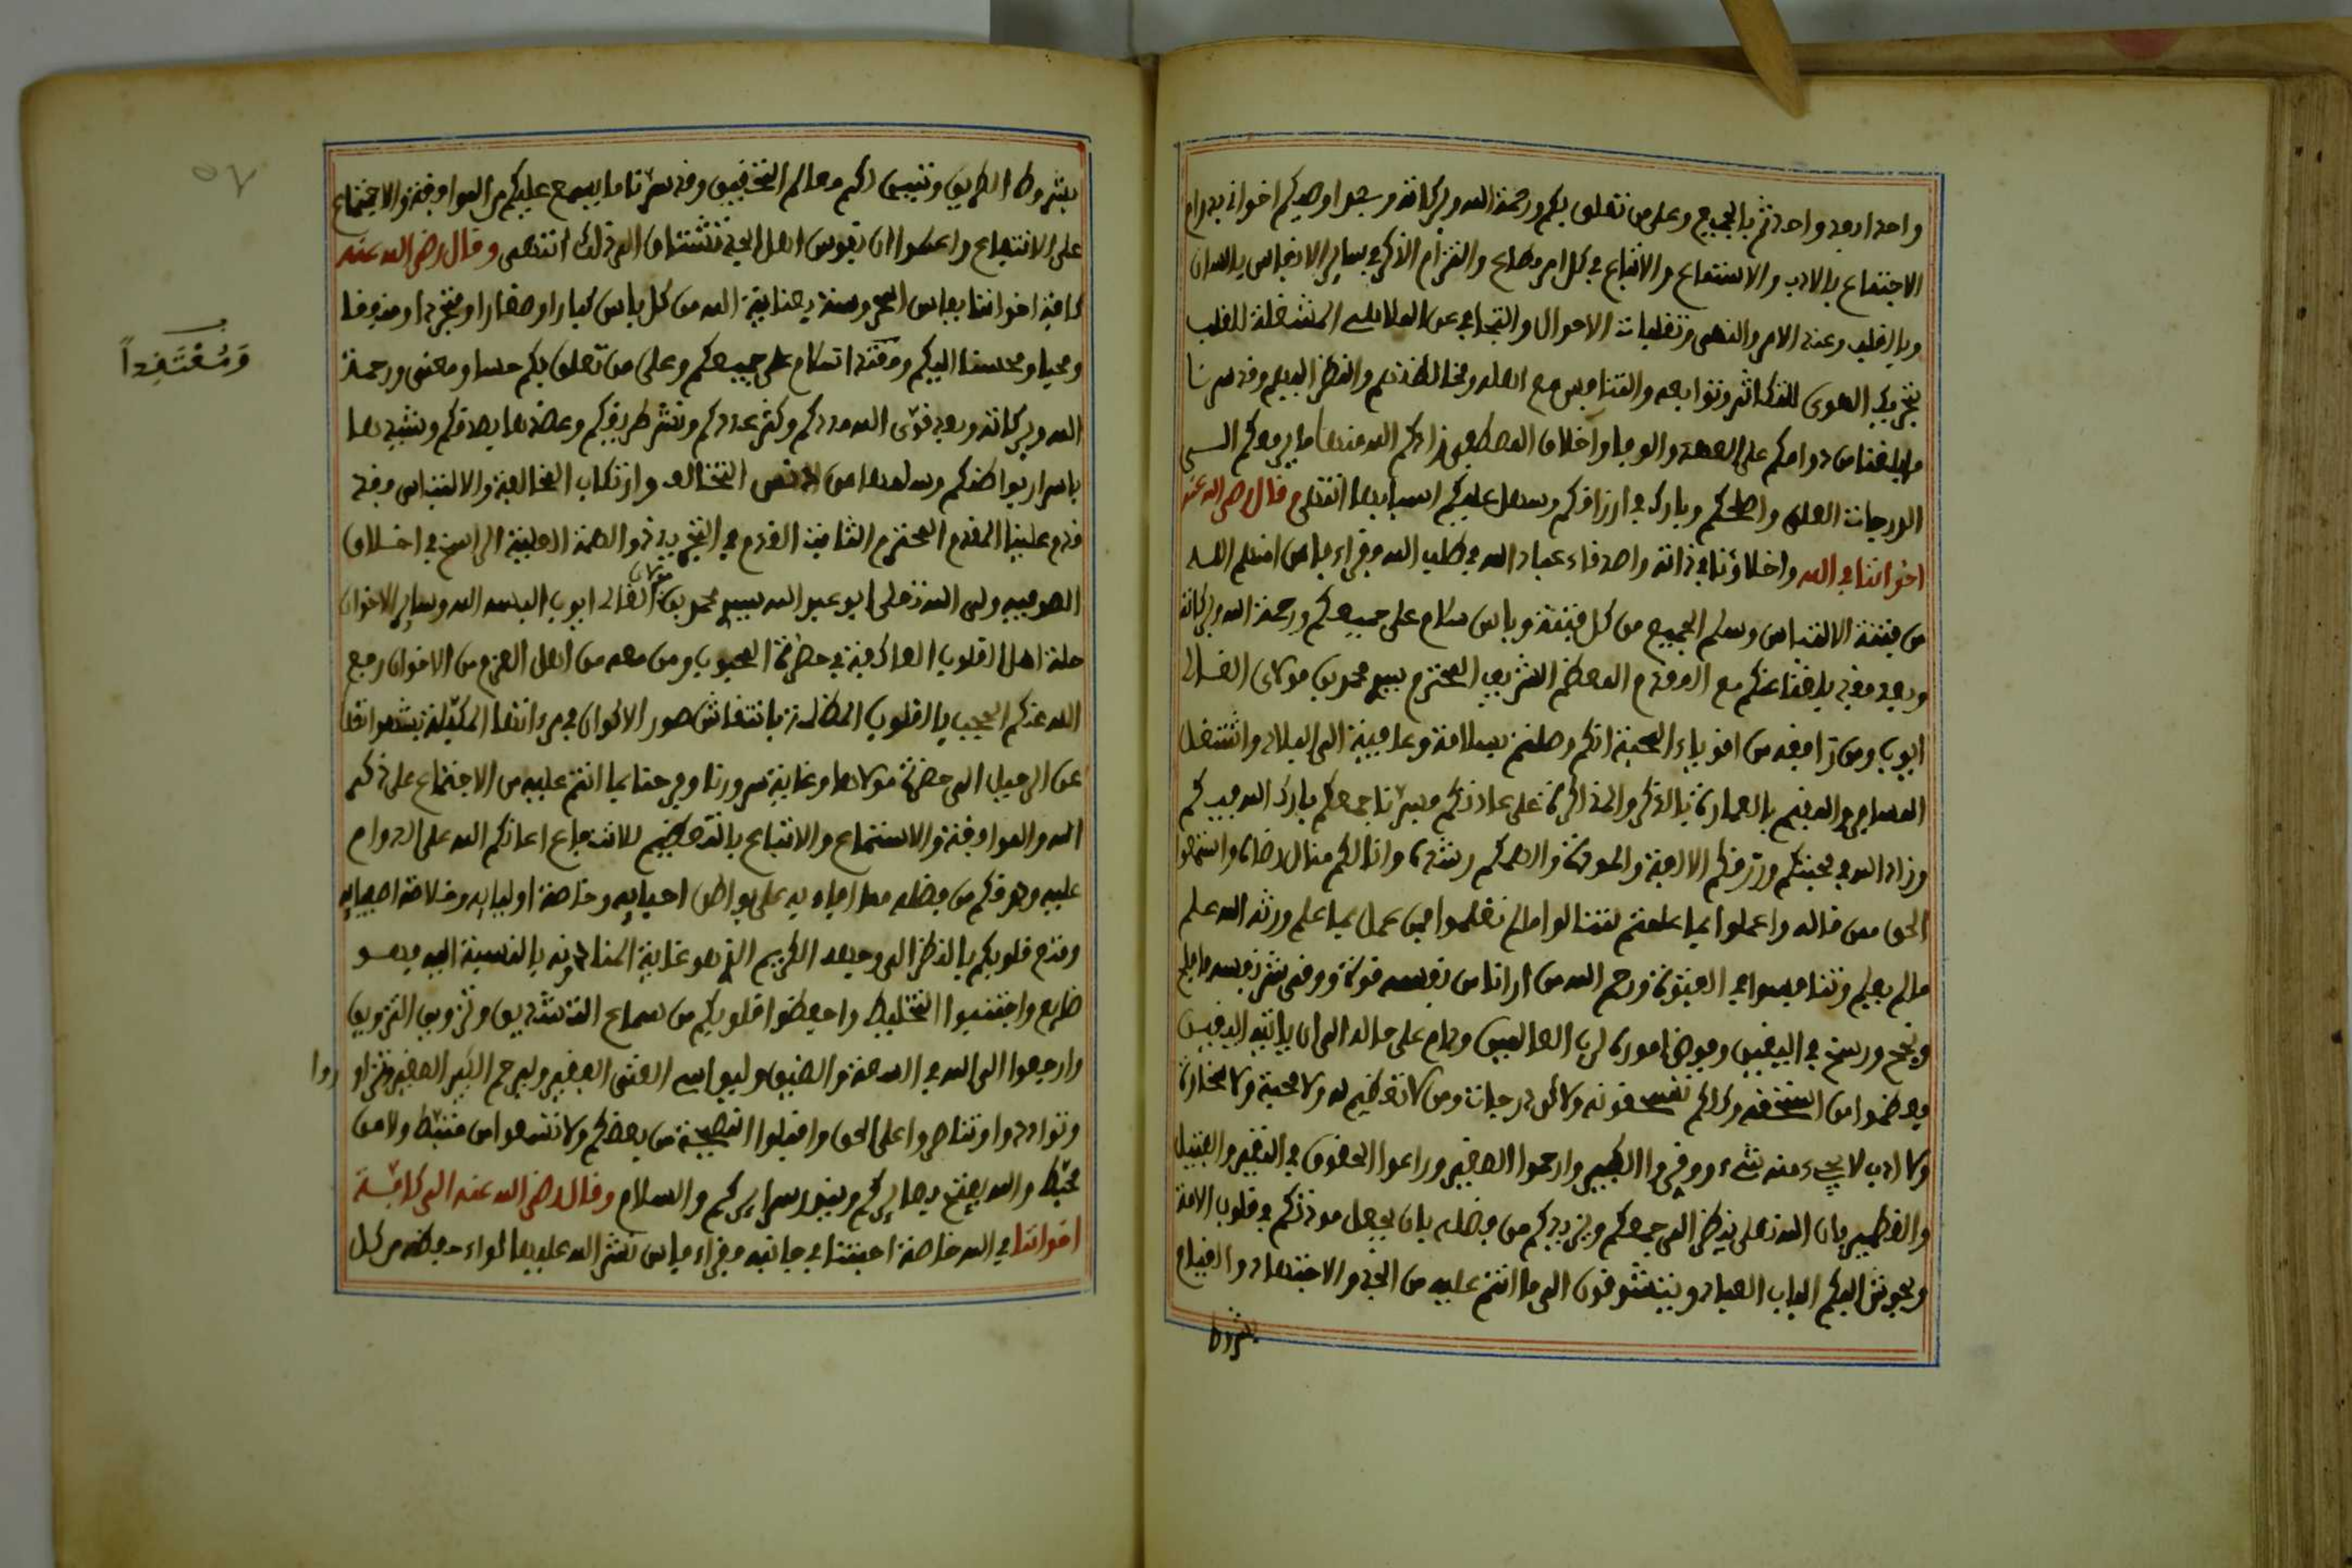 واحدا بعد واحد ثم بالجميع وعلى من تعلق بكم ورحمة الله وبركاته وبعد اوصيكم اخواني بدوام
الاجتماع بالادب والاستماع والاتباع في كل امر مطاع والتزام الذكر في ساير الانفاس باللسان
وبالقلب وعند الامر والنهى وتقلبات الاحوال والتجافي عن العلايق المشغلة للقلب
بتحريك الهوى للتكاثر وتوابعه والتنافس مع اهله ومخالطتهم والنظر اليهم وقد سرنا
ما بلغنا من دوامكم على العهد والوفا واخلاق المصطفى زادكم الله منها ما يرفعكم الى
الدرجات العلى واصلحكم وبارك في ارزاقكم وسهل عليكم اسبابها انتهى وقال رضي الله عنه
اخواننا في الله واخلاؤنا في ذاته واصدقاء عباد الله في طلب الله فقراء فاس امنهم الله
من فتنة الالتباس وسلم الجميع من كل فتنة وباس سلام على جميعكم ورحمة الله وبركاته
وبعد فقد بلغنا عنكم مع المقدم المعظم الشريف المحترم سيدي محمد بن مولاي الغالي
ايوب ومن رافقه من اقوياء المحبة انكم وصلتم بسلامة وعافية الى البلاد واشتغل
المسافر والمقيم بالعمارة بالذكر والمذاكرة على عادتكم فسرنا جمعكم بارك الله فيكم
وزاد الله في محبتكم ورزقكم الالفة والمودة والهمكم رشده وانالكم منال رضاه واسمعوا
الحق ممن قاله واعملوا بما علمتم لتنالوا ما لم تعلموا فمن عمل بما علم ورثه الله علم
ما لم يعلم وتنافسوا في الفتوة ورحم الله من ارانا من نفسه قوة ووقي شر نفسه فافلح
ونجح ورسخ في اليقين وفوض اموره لرب العالمين ودام على حاله الى ان ياتيه اليقين
وعظموا من استحقه ولكل نفس قوته ولكل درجات ومن لا تعظيم له ولا محبة ولا مخالة
ولا ادب لا يجيء منه شيء ووقروا الكبير وارحموا الصغير وراعوا الحقوق في النقير والفتيل
والقطمير فان الله تعلى ينظر الى جمعكم ويزيدكم من فضله بان يجعل مودتكم في قلوب الامة
ويحوش اليكم الباب العباد ويتشوفون الى ما انتم عليه من الجد والاجتهاد والقيام
بشروط
بشروط الطريق وتتبين لكم معالم التحقيق وقد سرنا ما يسمع عليكم من الموافقة والاجتماع
على الانتفاع واعلموا ان نفوس اهل الجد تشتاق الى ذلك انتهى وقال رضي الله عنه
كافة اخواننا بفاس المحروسة بعناية الله من كل باس كبارا وصغارا ومتجردا ومتوقفا
ومحبا ومحسنا اليكم ومعتقدا سلام على جميعكم وعلى من تعلق بكم حسا ومعنى ورحمة
الله وبركاته وبعد قوى الله مددكم وكثر عددكم ونشر طريقكم وعضدها بصدقكم وشيدها
باسرار بواطنكم وسلمها من التخالف وارتكاب المخالفة والالتباس فقد
قدم علينا المقدم المحترم الثابت القدم في التجريد ذو الهمة العلية الراسخ في اخلاق
الصوفية ولى الله تعلى ابو عبد الله سيدي محمد بن مولاي الغالي ايوب البسه الله وساير الاخوان
حلة اهل القلوب العاكفة في حضرة المحبوب ومن معه من اهل العزم من الاخوان رفع
الله عنكم الحجب بالقلوب المظلمة بانتقاش صور الاكوان في مرءاتها المكبلة بشهواتها
عن الرحيل الى حضرة مولاها وغاية سرورنا وفرحنا بما انتم عليه من الاجتماع على ذكر
الله والموافقة والاستماع والاتباع بالتعظيم للانتفاع اعانكم الله على الدوام
عليه وهو فكم من فضله مما افاء به على بواطن احبابه وخاصة اوليايه وخلاصة اصفيايه
ومتع قلوبكم بالنظر الى وجهه الكريم الذي هو غاية المنا دونه بالنسبة اليه فهو
ضايع واجتنبوا التخليط واحفظوا قلوبكم من سماع التشديق وتزويق التزويق
وارجعوا الى الله في السعة والضيق وليواس الغني الفقير وليرحم الكبير الصغير وتزاوروا
وتواددوا وتناصروا على الحق واقبلوا النصيحة من بعضكم ولا تسمعوا من مثبط ولا من
مخبط والله يفتح بصايركم وينور سرايركم والسلام وقال رضي الله عنه الى كافة
اخواننا في الله خاصة احبتنا في جانبه فقراء فاس نشر الله عليها لواء حفظه من كل
وَمُعْتَقِداً
٥٧